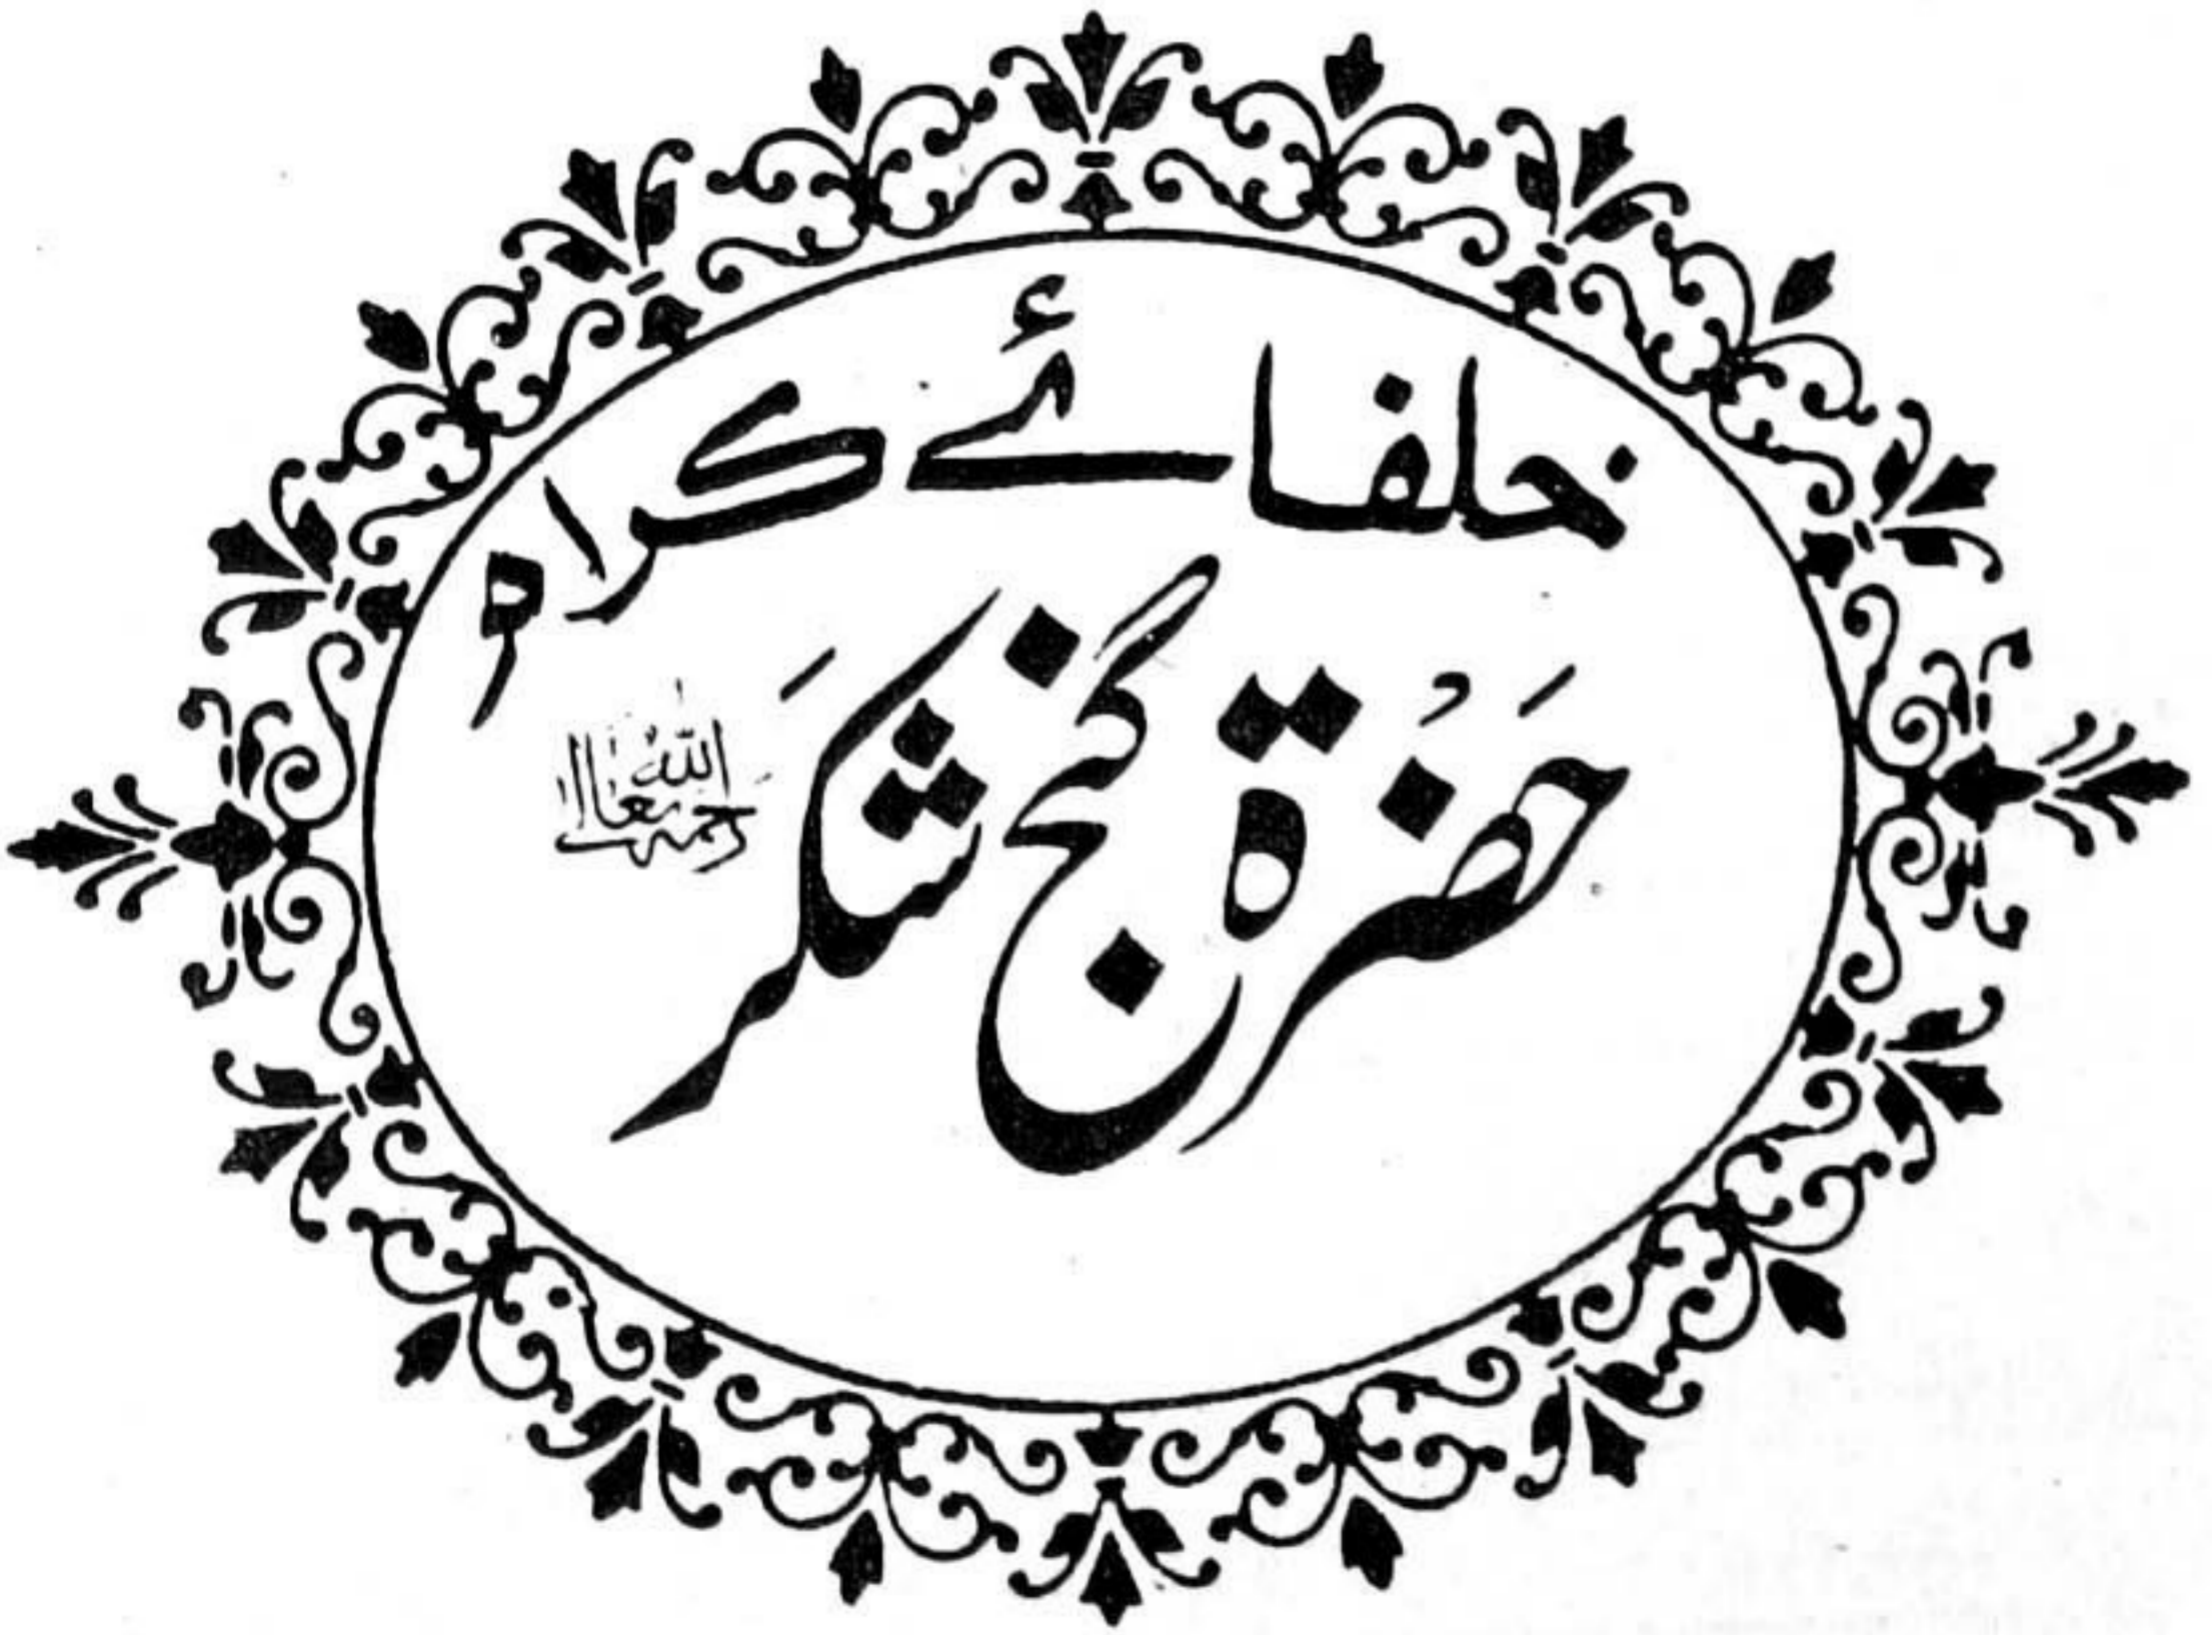 خلفائے کرام
حضرۃ گنج شکر رحمۃ اللہ تعالیٰ علیہ